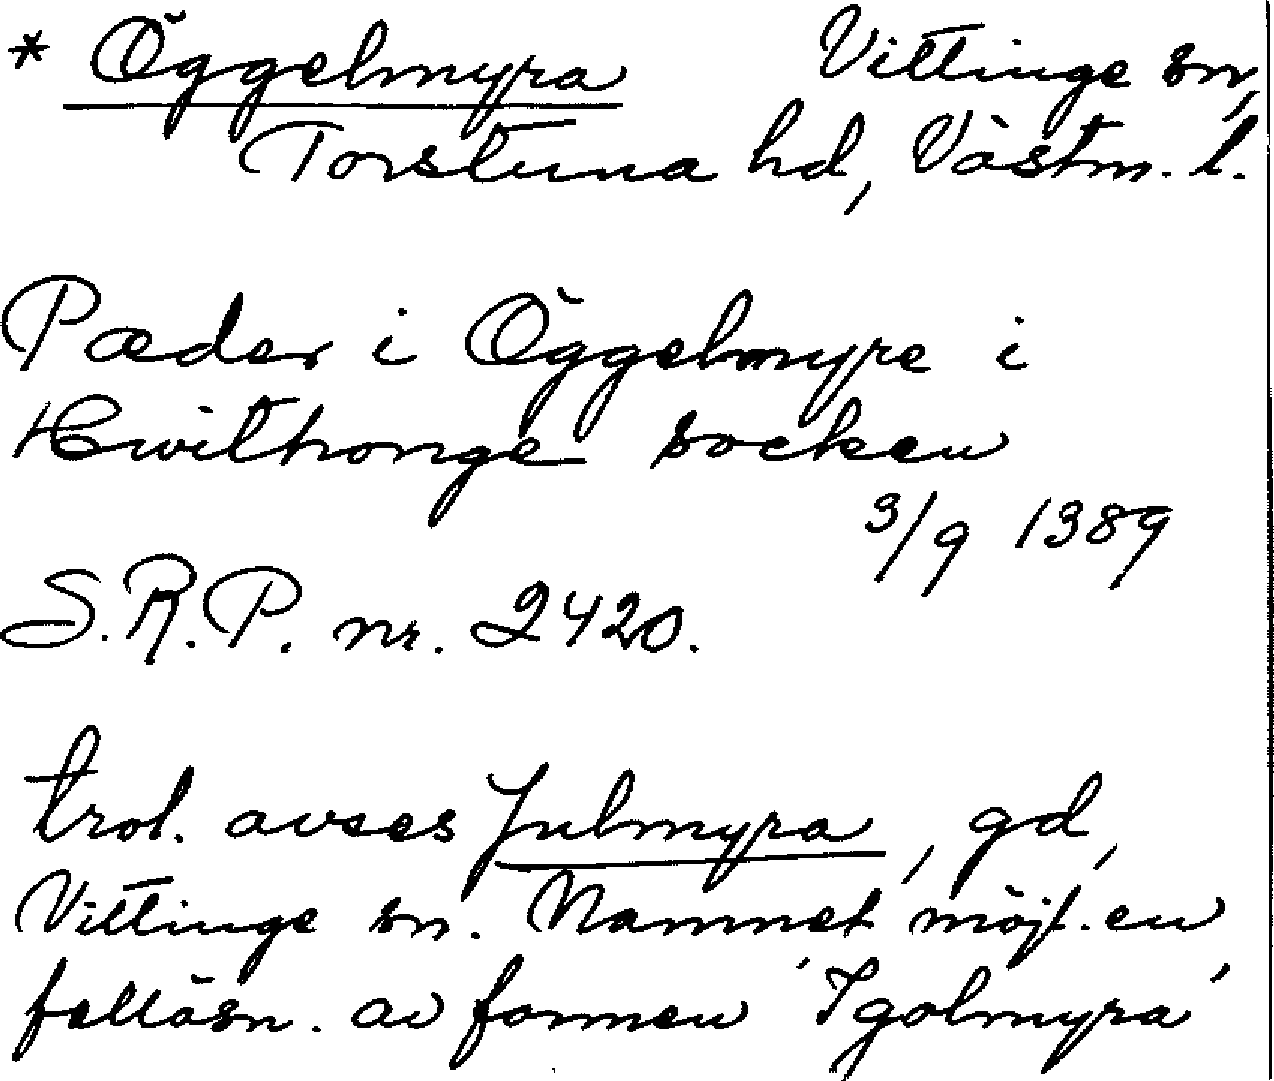 * Öggelmyra Vittinge sn,
Torstuna hd, Västm. l.
Pæder i Öggelmyre i
Hwithonge socken
3/9 1389
S.R.P. nr. 2420.
trol. avses Julmyra, gd,
Vittinge sn. Namnet möjl. en
felläsn. av formen 'Igolmyra'